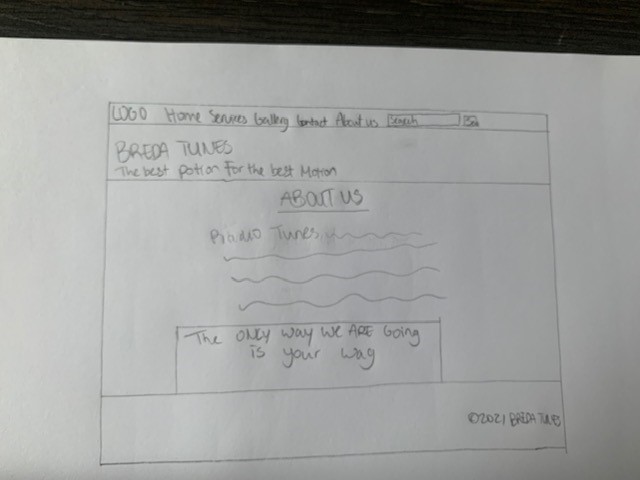 LOGO Home Services Gallery Contact About us Search
BREDA TUNES
The best potion for the best Motion
ABOUT US
Piano Tunes
The ONLY way WE ARE Going
is your way
©2021 BREDA TUNES